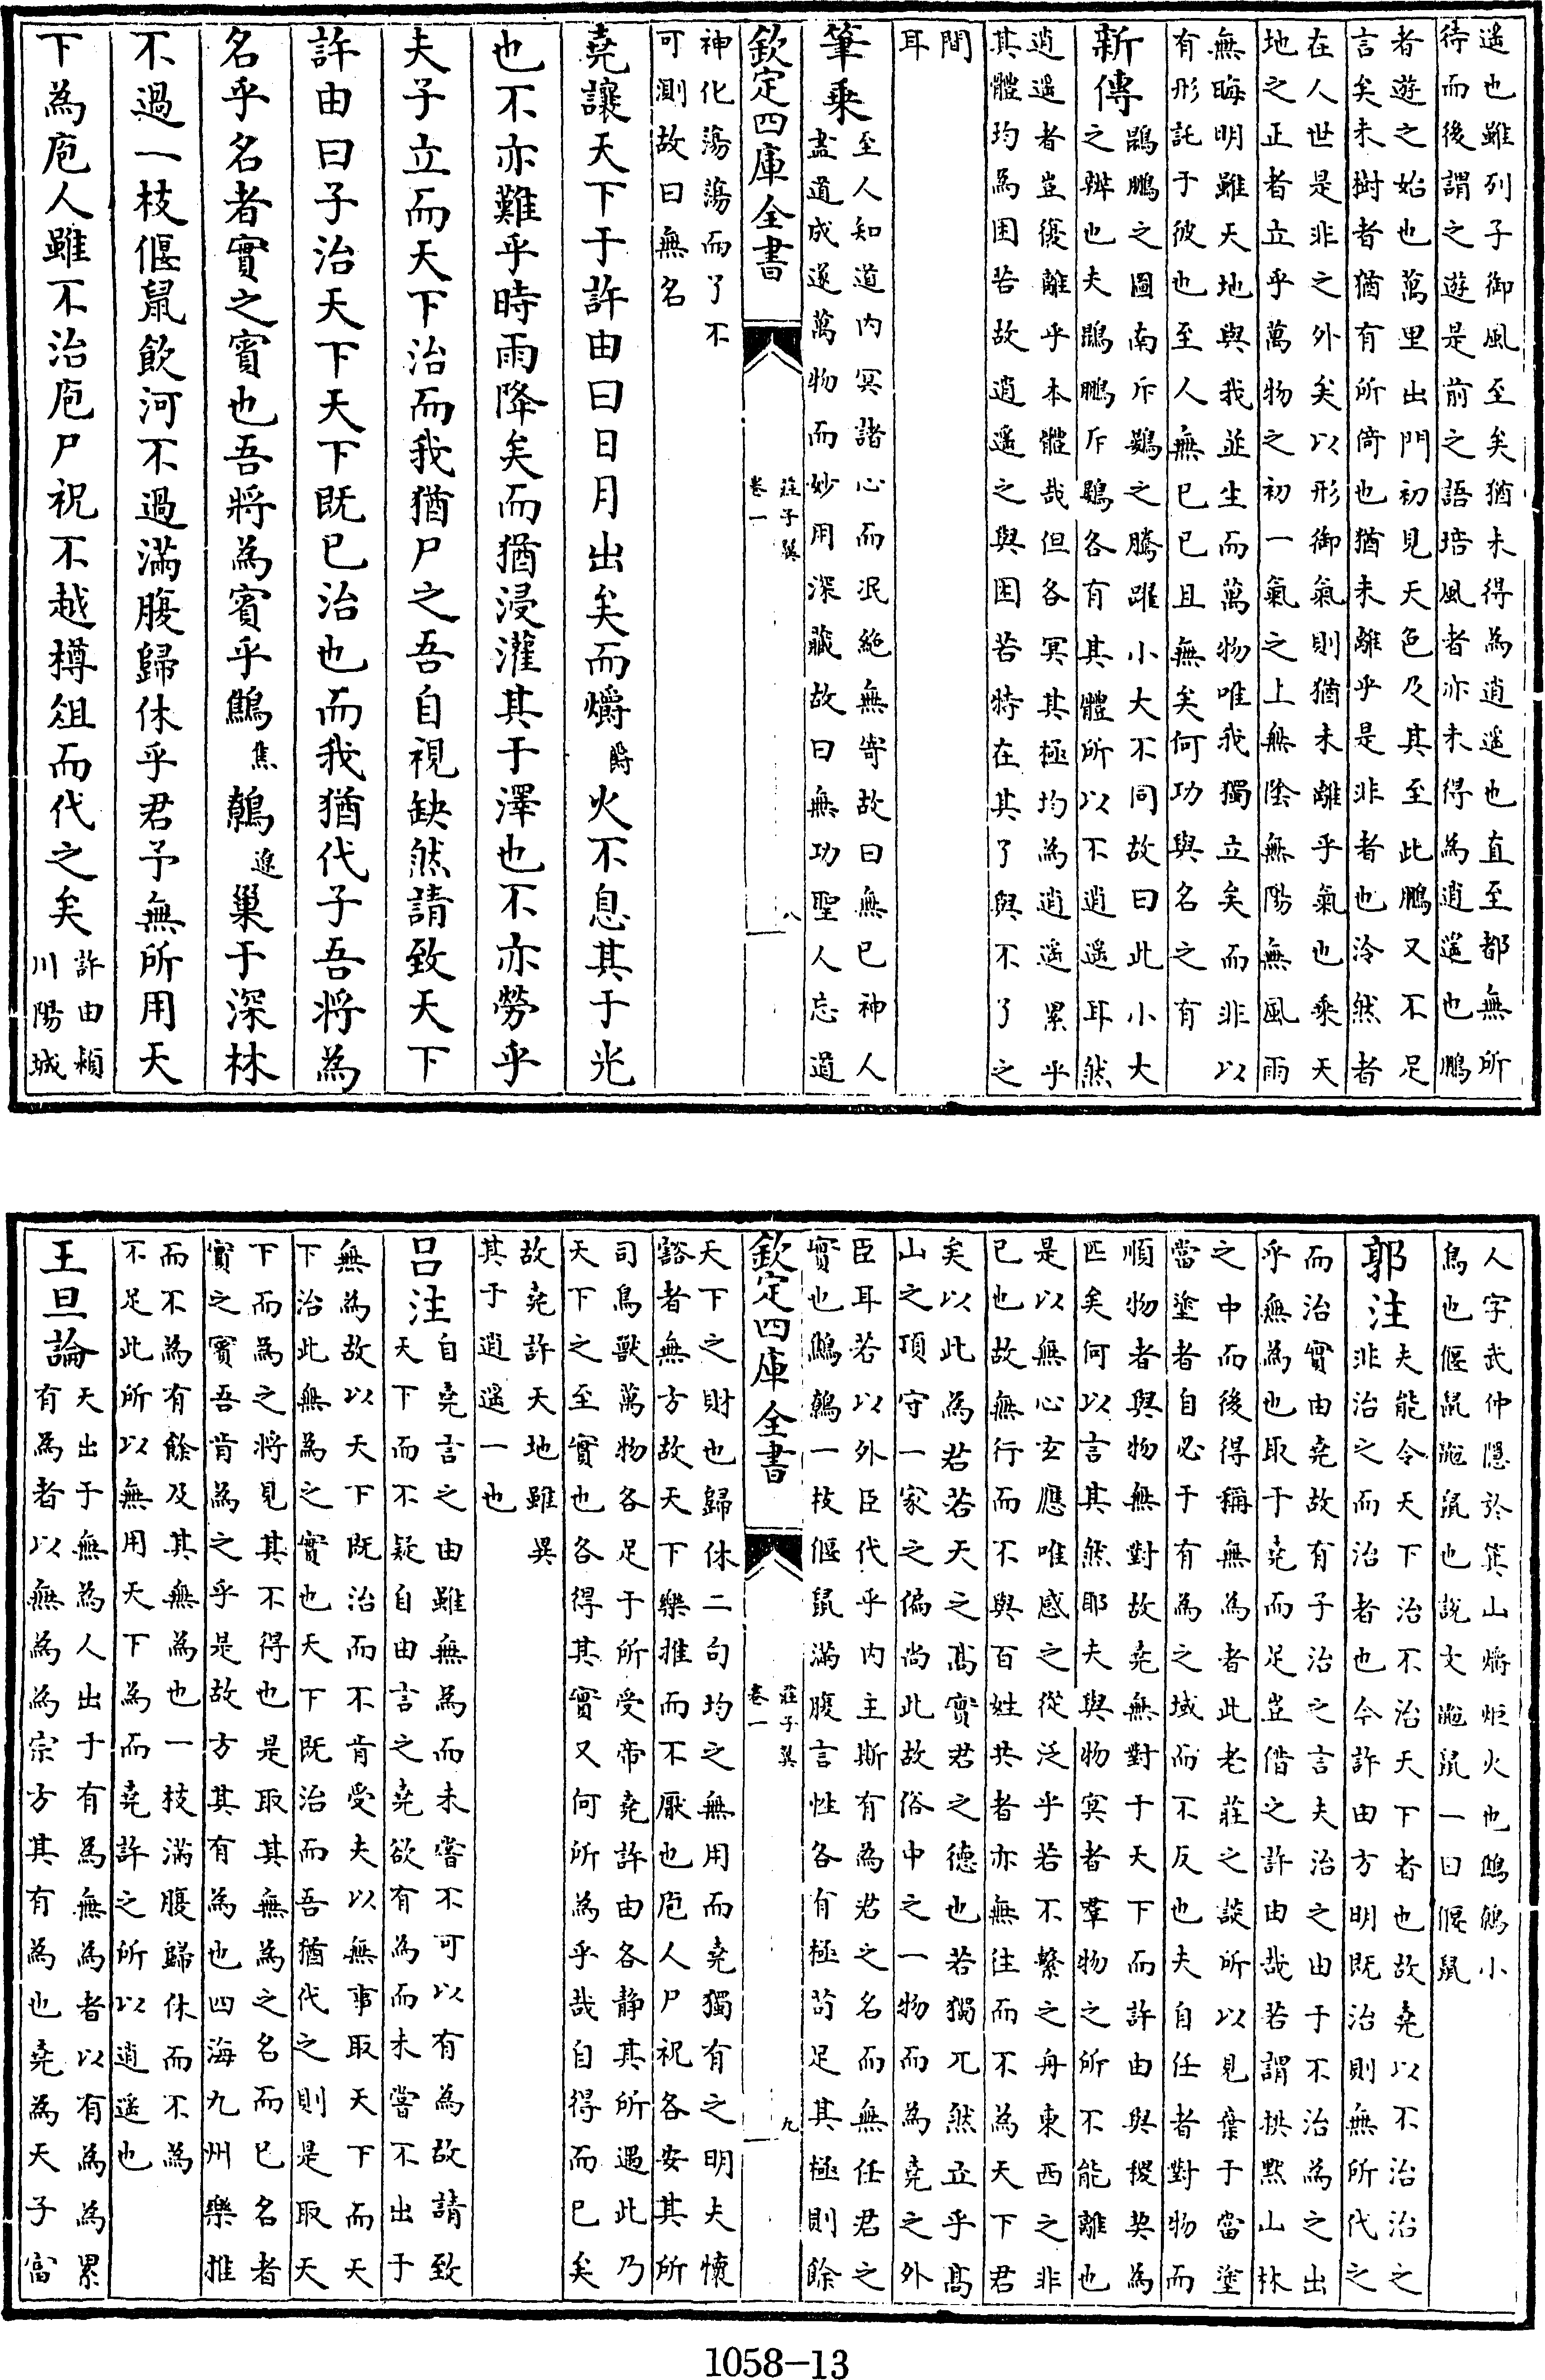 遙也雖列子御風至矣猶未得為逍遙也直至都無所
待而後謂之遊是前之語培風者亦未得為逍遙也鵬
者遊之始也萬里出門初見天色及其至此鵬又不足
言矣未樹者猶有所倚也猶未離乎是非者也泠然者
在人世是非之外矣以形御氣則猶未離乎氣也乘天
地之正者立乎萬物之初一氣之上無陰無陽無風雨
無晦明雖天地與我並生而萬物唯我獨立矣而非以
有形託于彼也至人無已已且無矣何功與名之有
新傳
鵾鵬之圖南斥鷃之騰躍小大不同故曰此小大
之辨也夫鵾鵬斥鷃各有其體所以不逍遙耳然
逍遙者豈復離乎本體哉但各冥其極均為逍遙累乎
其體均為困苦故逍遙之與困苦特在其了與不了之
間
耳
筆乘
至人知道內冥諸心而泯絕無寄故曰無已神人
盡道成遂萬物而妙用深藏故曰無功聖人忘道
欽定四庫全書
莊子翼
卷一
八
神化蕩蕩而了不
可測故曰無名
堯讓天下于許由曰日月出矣而爝爵火不息其于光
也不亦難乎時雨降矣而猶浸灌其于澤也不亦勞乎
夫子立而天下治而我猶尸之吾自視缺然請致天下
許由曰子治天下天下既已治也而我猶代子吾將為
名乎名者實之賓也吾將為賓乎鷦焦鷯遼巢于深林
不過一枝偃鼠飲河不過滿腹歸休乎君予無所用天
下為庖人雖不治庖尸祝不越樽俎而代之矣
許由潁
川陽城
人字武仲隱於箕山爝炬火也鷦鷯小
鳥也偃鼠䶈鼠也說文䶈鼠一曰偃鼠
郭注
夫能令天下治不治天下者也故堯以不治治之
非治之而治者也今許由方明既治則無所代之
而治實由堯故有子治之言夫治之由于不治為之出
乎無為也取于堯而足豈借之許由哉若謂拱默山林
之中而後得稱無為者此老莊之談所以見棄于當塗
當塗者自必于有為之域而不反也夫自任者對物而
順物者與物無對故堯無對于天下而許由與稷契為
匹矣何以言其然耶夫與物冥者羣物之所不能離也
是以無心玄應唯感之從泛乎若不繫之舟東西之非
已也故無行而不與百姓共者亦無往而不為天下君
矣以此為君若天之髙實君之德也若獨兀然立乎髙
山之頂守一家之偏尚此故俗中之一物而為堯之外
臣耳若以外臣代乎內主斯有為君之名而無任君之
實也鷦鷯一枝偃鼠滿腹言性各有極茍足其極則餘
欽定四庫全書
莊子翼
卷一
九
天下之財也歸休二句均之無用而堯獨有之明夫懷
豁者無方故天下樂推而不厭也庖人尸祝各安其所
司鳥獸萬物各足于所受帝堯許由各静其所遇此乃
天下之至實也各得其實又何所為乎哉自得而已矣
故堯許天地雖異
其于逍遙一也
吕注
自堯言之由雖無為而未嘗不可以有為故請致
天下而不疑自由言之堯欲有為而未嘗不出于
無為故以天下既治而不肯受夫以無事取天下而天
下治此無為之實也天下既治而吾猶代之則是取天
下而為之將見其不得也是取其無為之名而已名者
實之賓吾肯為之乎是故方其有為也四海九州樂推
而不為有餘及其無為也一枝滿腹歸休而不為
不足此所以無用天下為而堯許之所以逍遙也
王旦論
天出于無為人出于有為無為者以有為為累
有為者以無為為宗方其有為也堯為天子富
1058-13